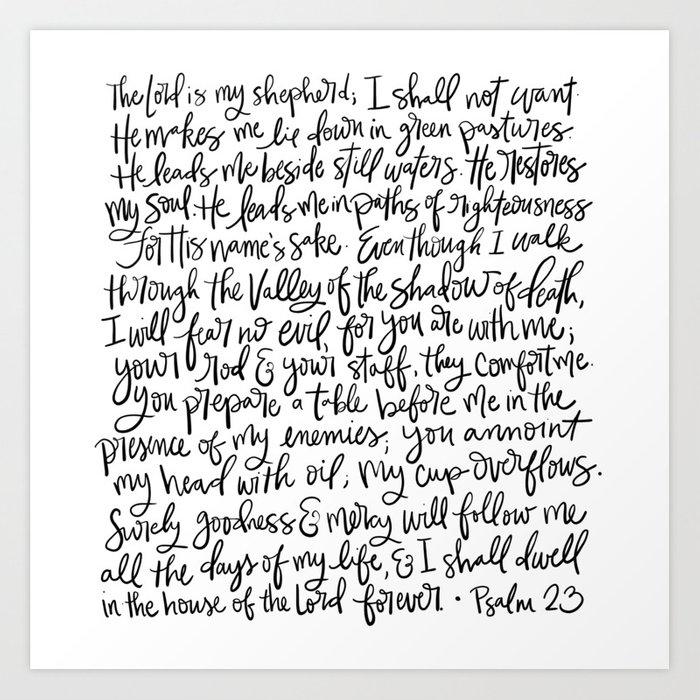 The Lord is my shepherd; I shall not want.
He makes me lie down in green pastures.
He leads me beside still waters. He restores
my soul. He leads me in paths of righteousness
for His name's sake. Even though I walk
through the valley of the shadow of death,
I will fear no evil, for you are with me;
your rod & your staff, they comfort me.
You prepare a table before me in the
presence of my enemies; you annoint
my head with oil; my cup overflows.
Surely goodness & mercy will follow me
all the days of my life, & I shall dwell
in the house of the Lord forever. • Psalm 23